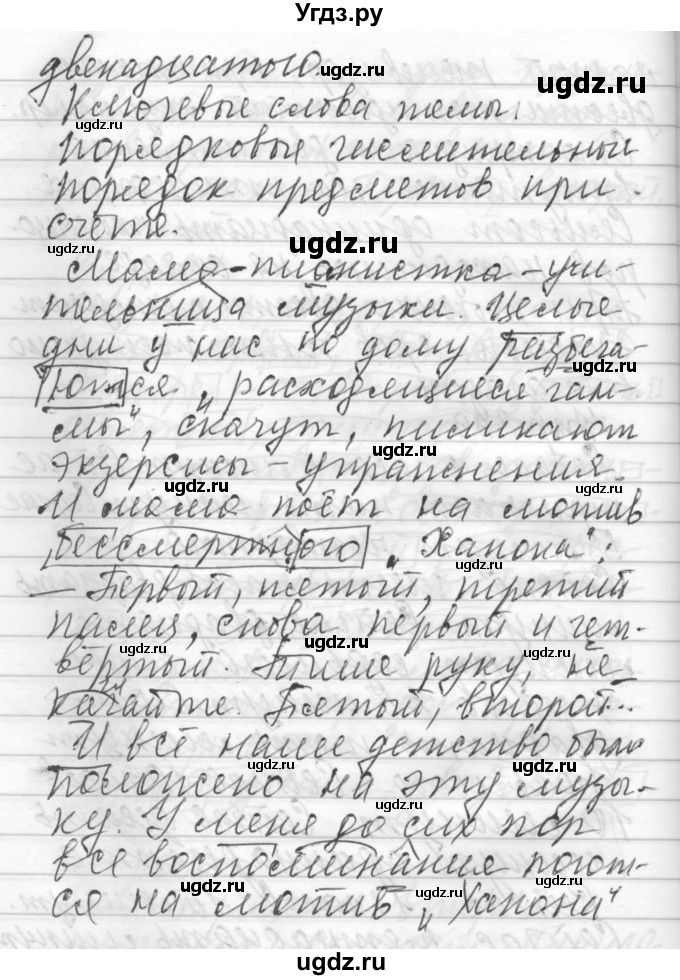 Угдз.ру
двенадцатого.
Ключевые слова темы:
порядковые числительные
порядок предметов при
счёте.
Мама-пианистка-учи-
тельница музыки. Целые
дни у нас по дому разбега-
ются „расходящиеся гам-
мы", скачут, пиликают
экзерсисы - упражнения.
И мама поёт на мотив
бессмертного „Ханона":
- Первый, пятый, третий
палец, снова первый и чет-
вёртый. Тише руку, не
качайте. Пятый, второй...
И всё наше детство было
положено на эту музы-
ку. У меня до сих пор
все воспоминания поют-
ся на мотив „Ханона"
ugdz.ru